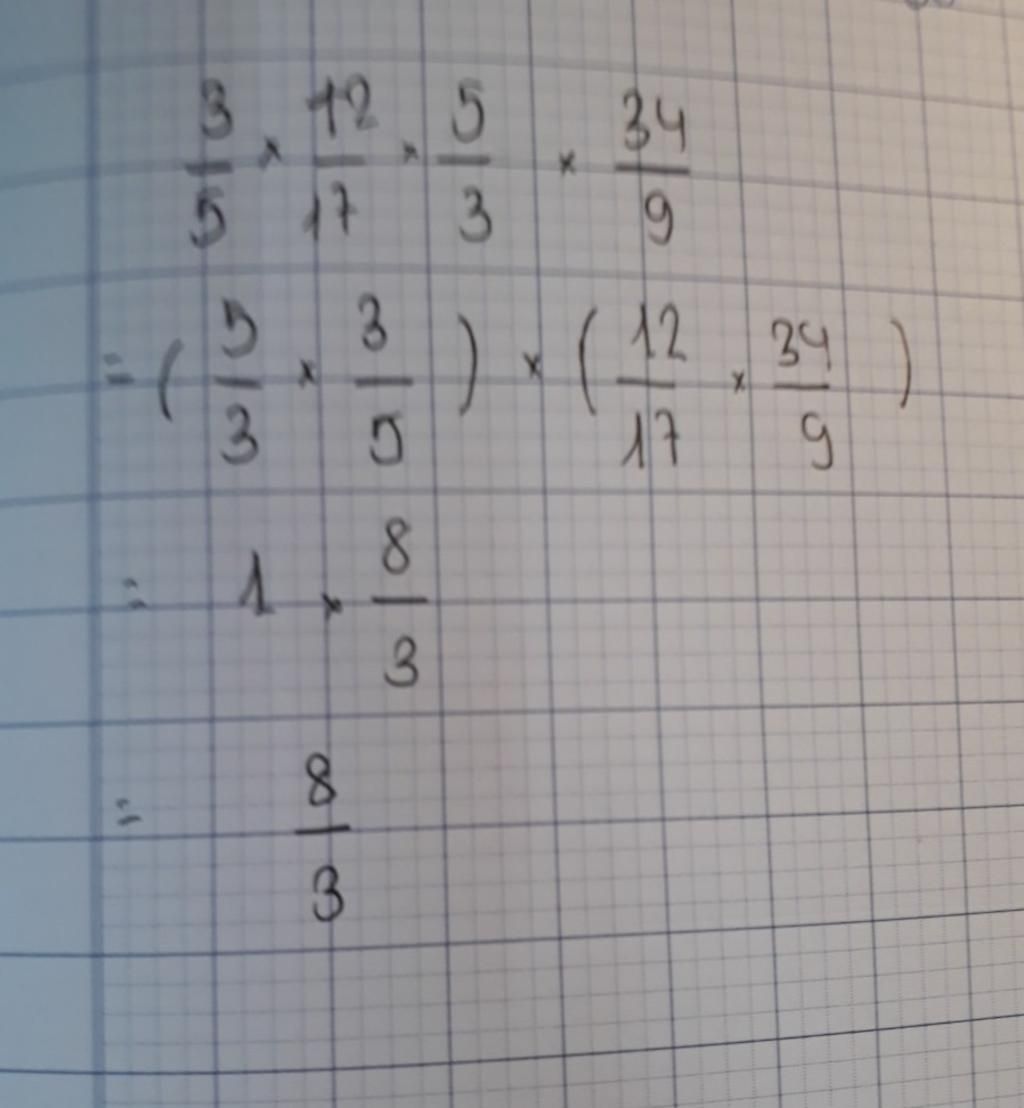 3/5 × 12/17 × 5/3 × 34/9
= (5/3 × 3/5) × (12/17 × 34/9)
= 1 × 8/3
= 8/3